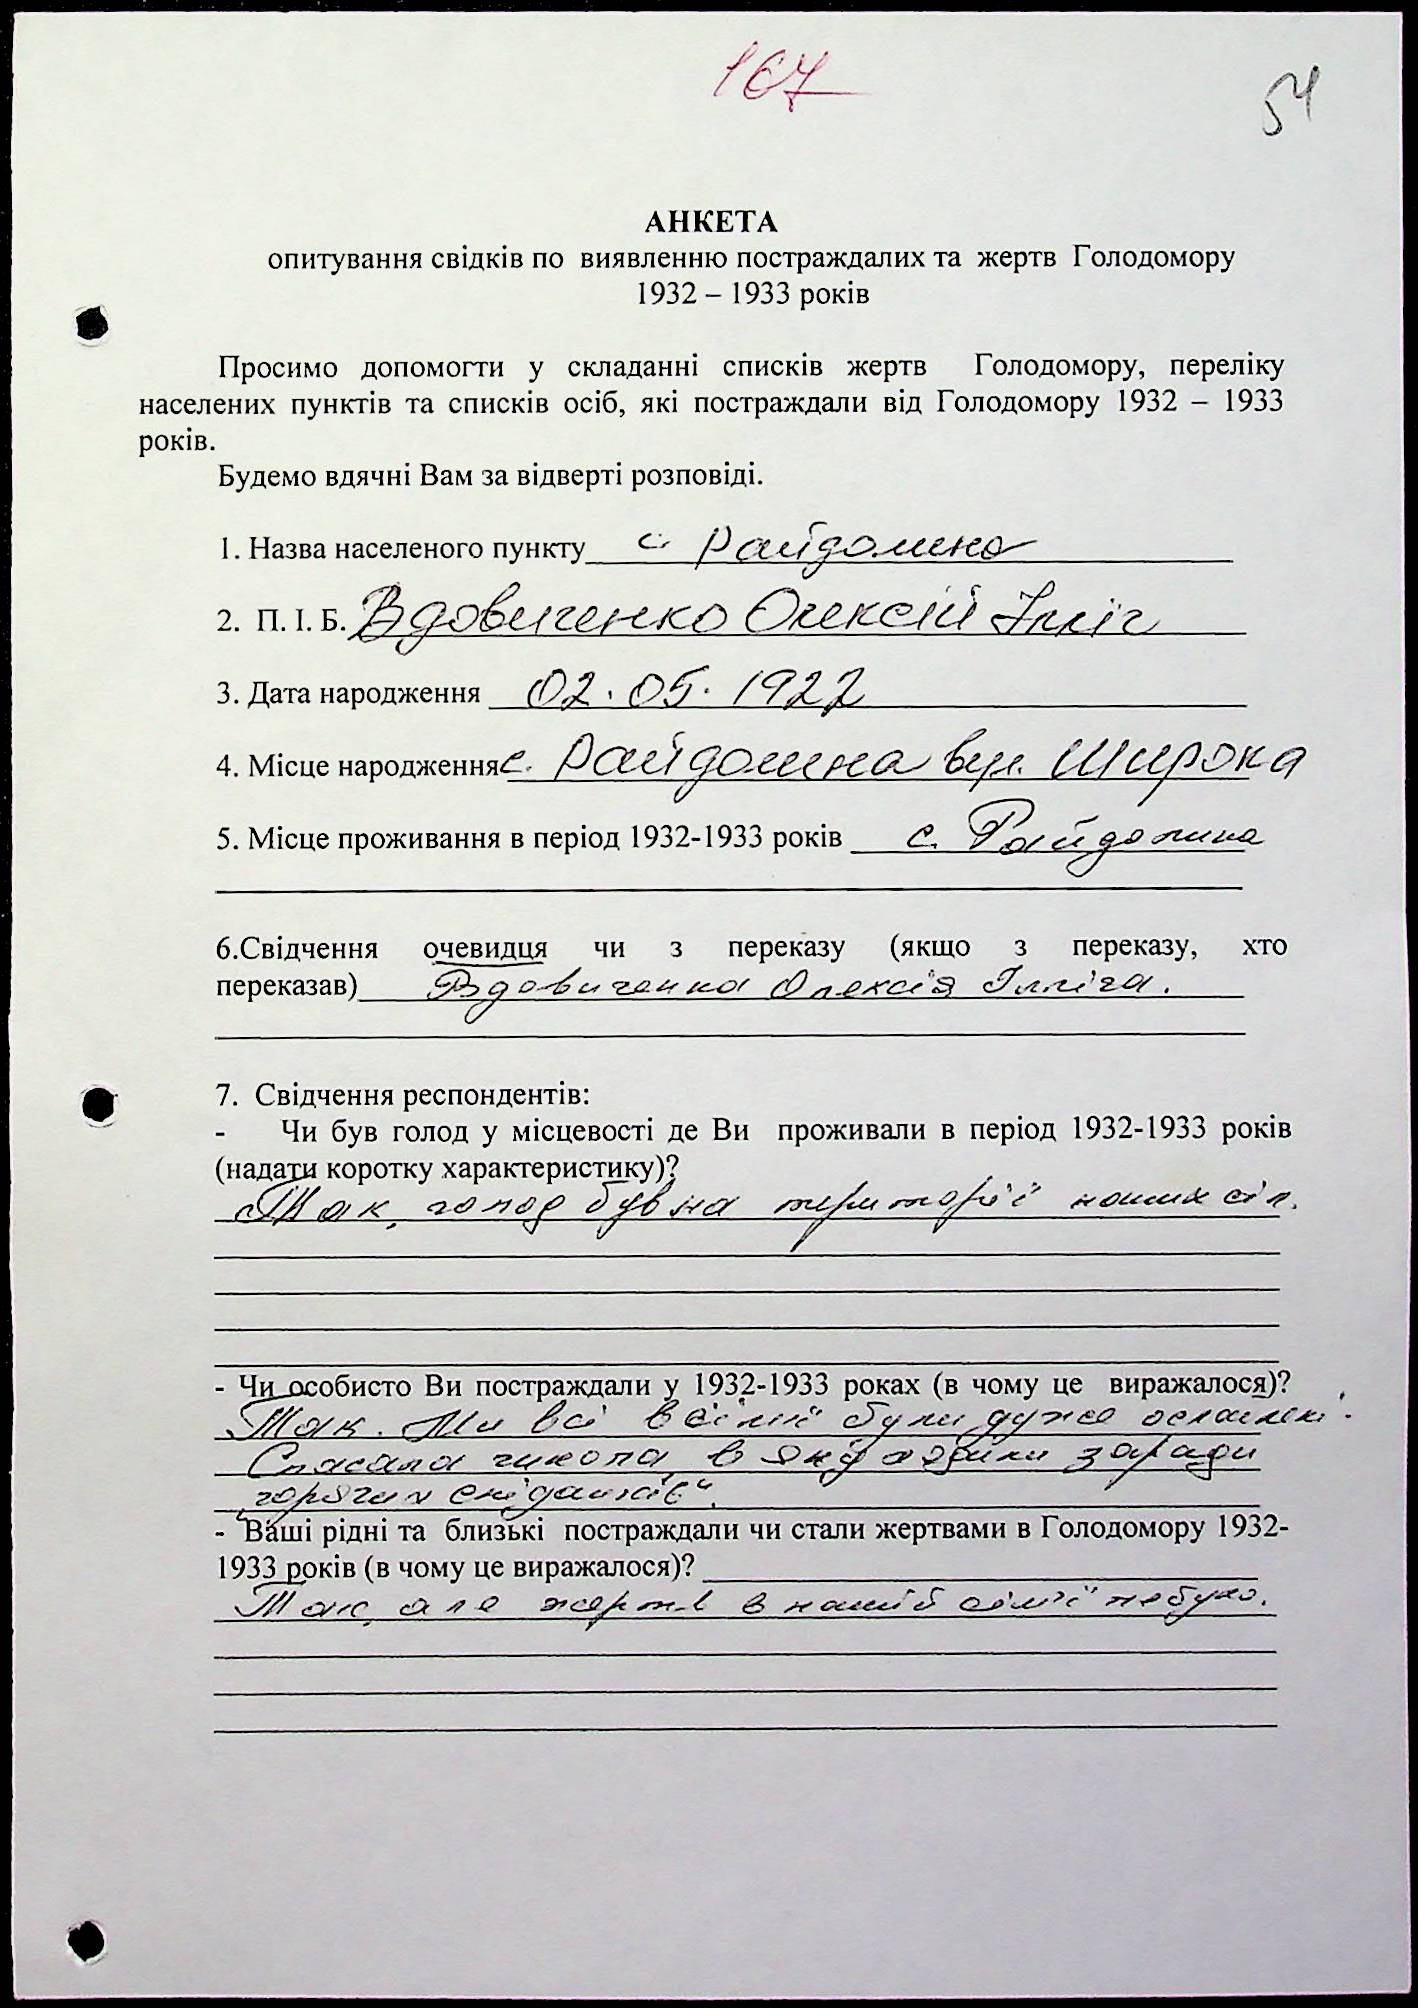 167
54
АНКЕТА
опитування свідків по виявленню постраждалих та жертв Голодомору
1932 – 1933 років
Просимо допомогти у складанні списків жертв Голодомору, переліку
населених пунктів та списків осіб, які постраждали від Голодомору 1932 – 1933
років.
Будемо вдячні Вам за відверті розповіді.
1. Назва населеного пункту с. Райдолина
2. П. І. Б. Вдовиченко Олексій Ілліч
3. Дата народження 02.05.1922
4. Місце народження с. Райдолина вул. Широка
5. Місце проживання в період 1932-1933 років с. Райдолина
6.Свідчення очевидця чи з переказу (якщо з переказу, хто
переказав) Вдовиченка Олексія Ілліча.
7. Свідчення респондентів:
- Чи був голод у місцевості де Ви проживали в період 1932-1933 років
(надати коротку характеристику)?
Так, голод був на території наших сіл.
- Чи особисто Ви постраждали у 1932-1933 роках (в чому це виражалося)?
Так. Ми всі в сім'ї були дуже ослаблені.
Спасала школа, в яку ходили заради
"горячих сніданків".
- Ваші рідні та близькі постраждали чи стали жертвами в Голодомору 1932-
1933 років (в чому це виражалося)?
Так, але жертв в нашій сім'ї не було.